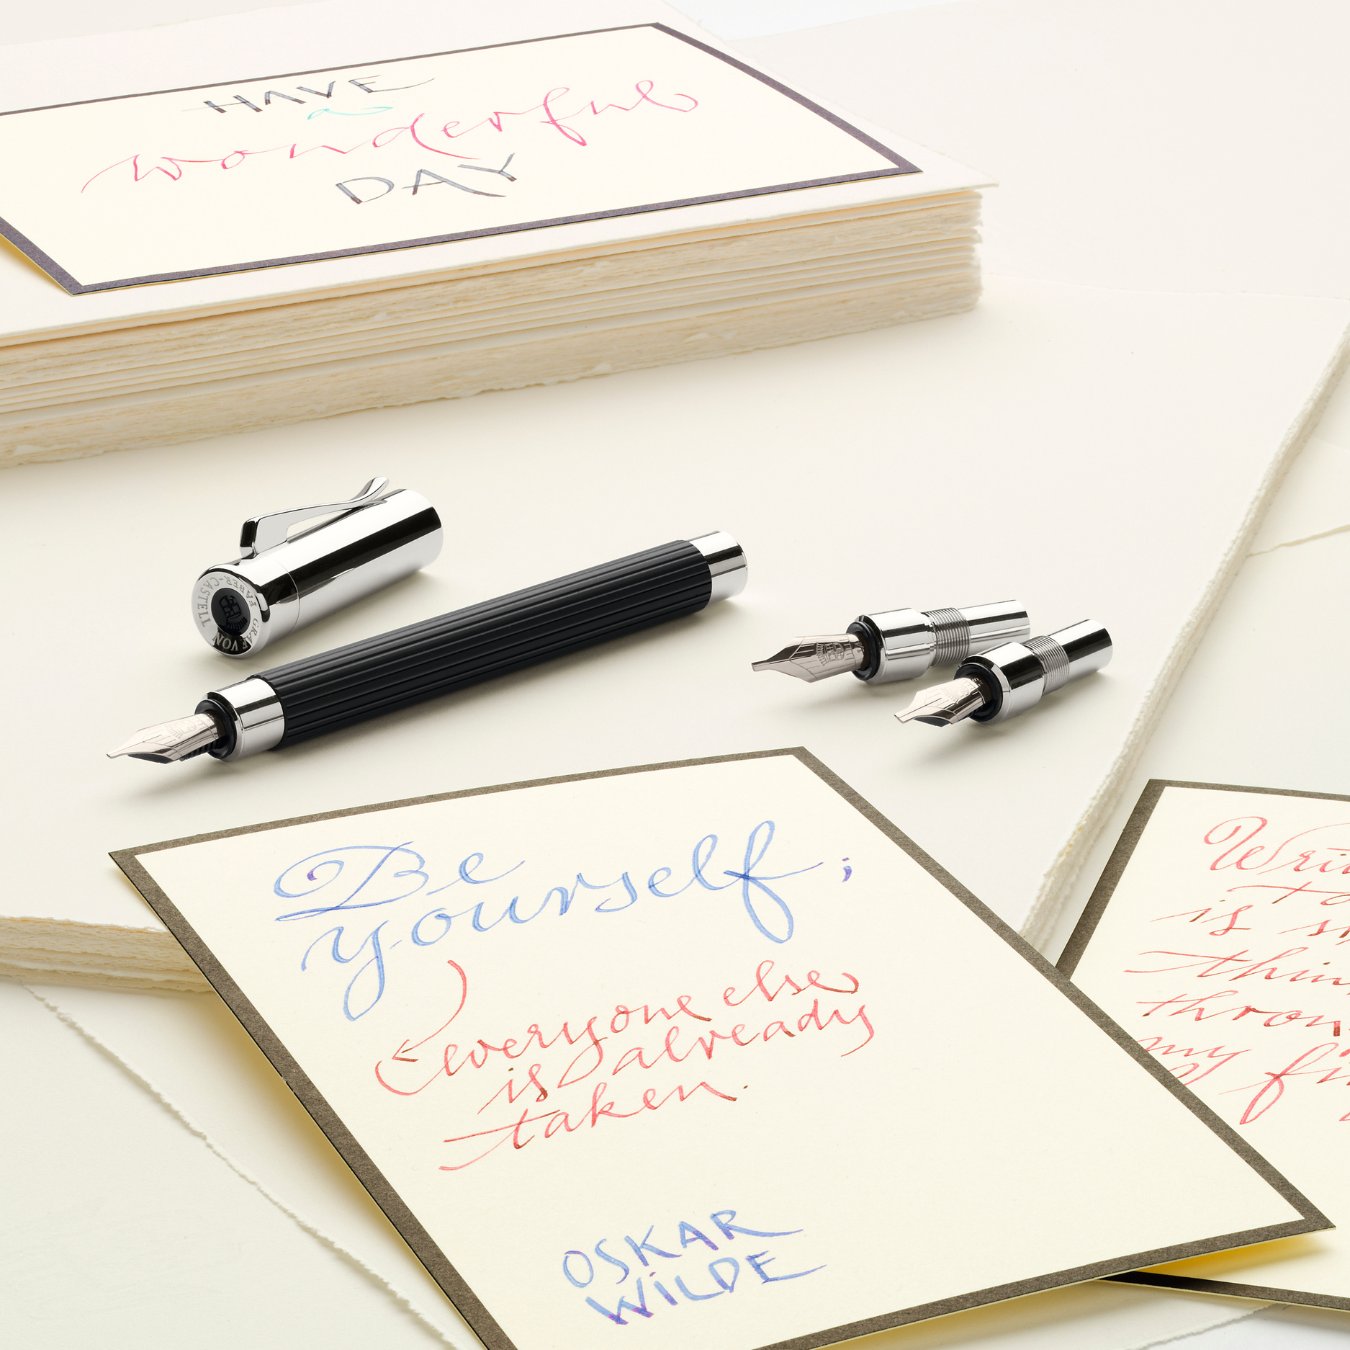 HAVE
a
wonderful
DAY
GRAF VON FABER-CASTELL
Be
yourself;
everyone else
is already
taken.
OSKAR
WILDE
is
my